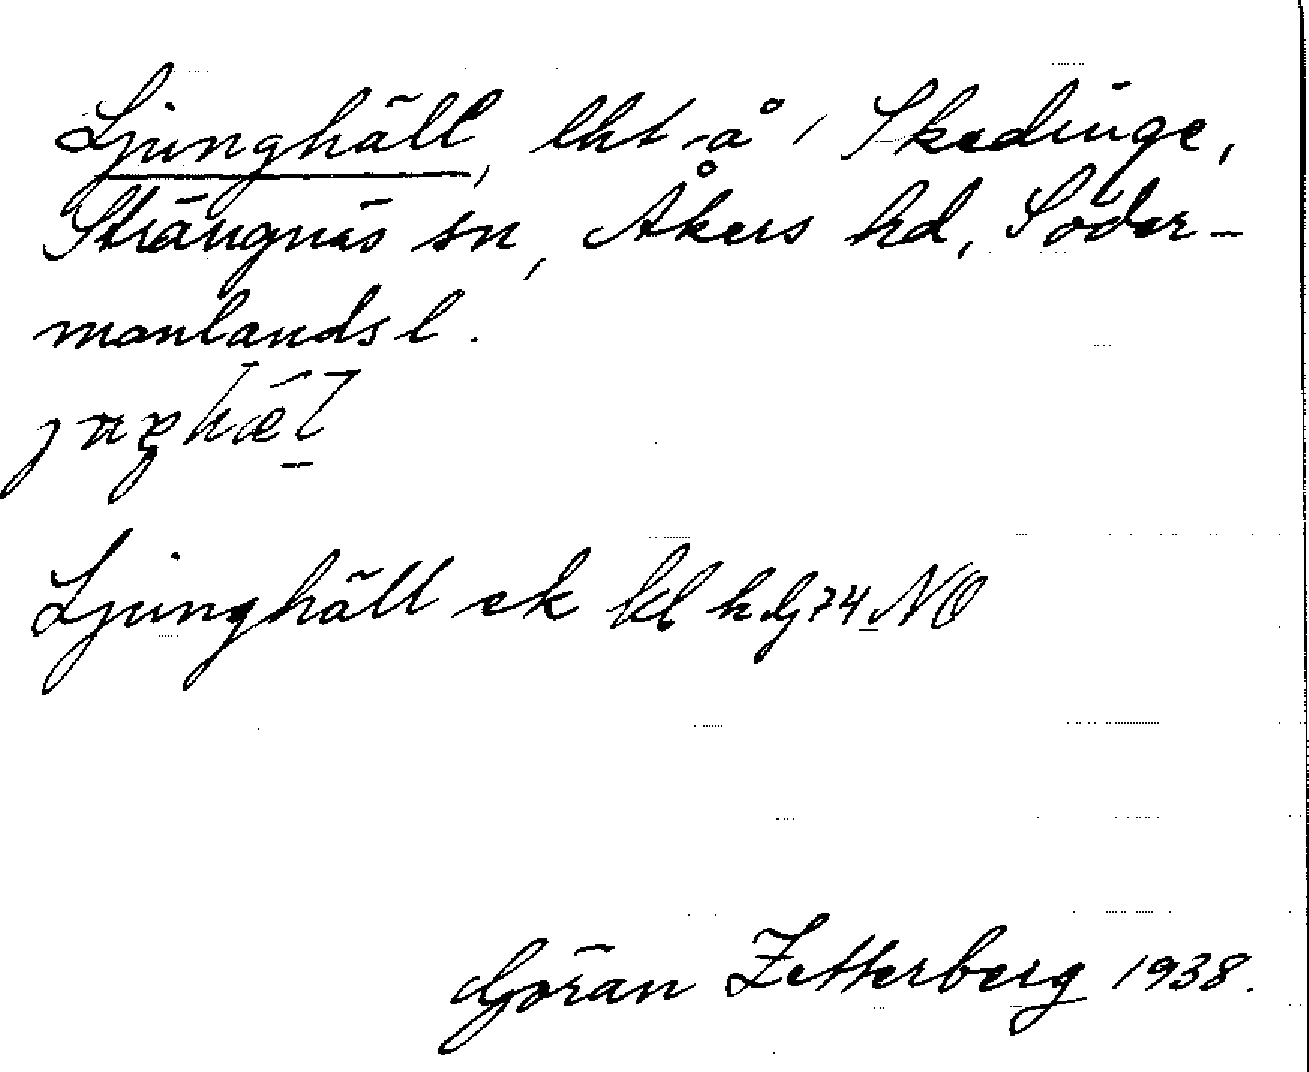 Ljunghäll, lht på i Skedinge,
Strängnäs sn, Åkers hd, Söder-
manlands l.
Ljunghäll ek kl hdg 74 NO
Göran Zetterberg 1938.